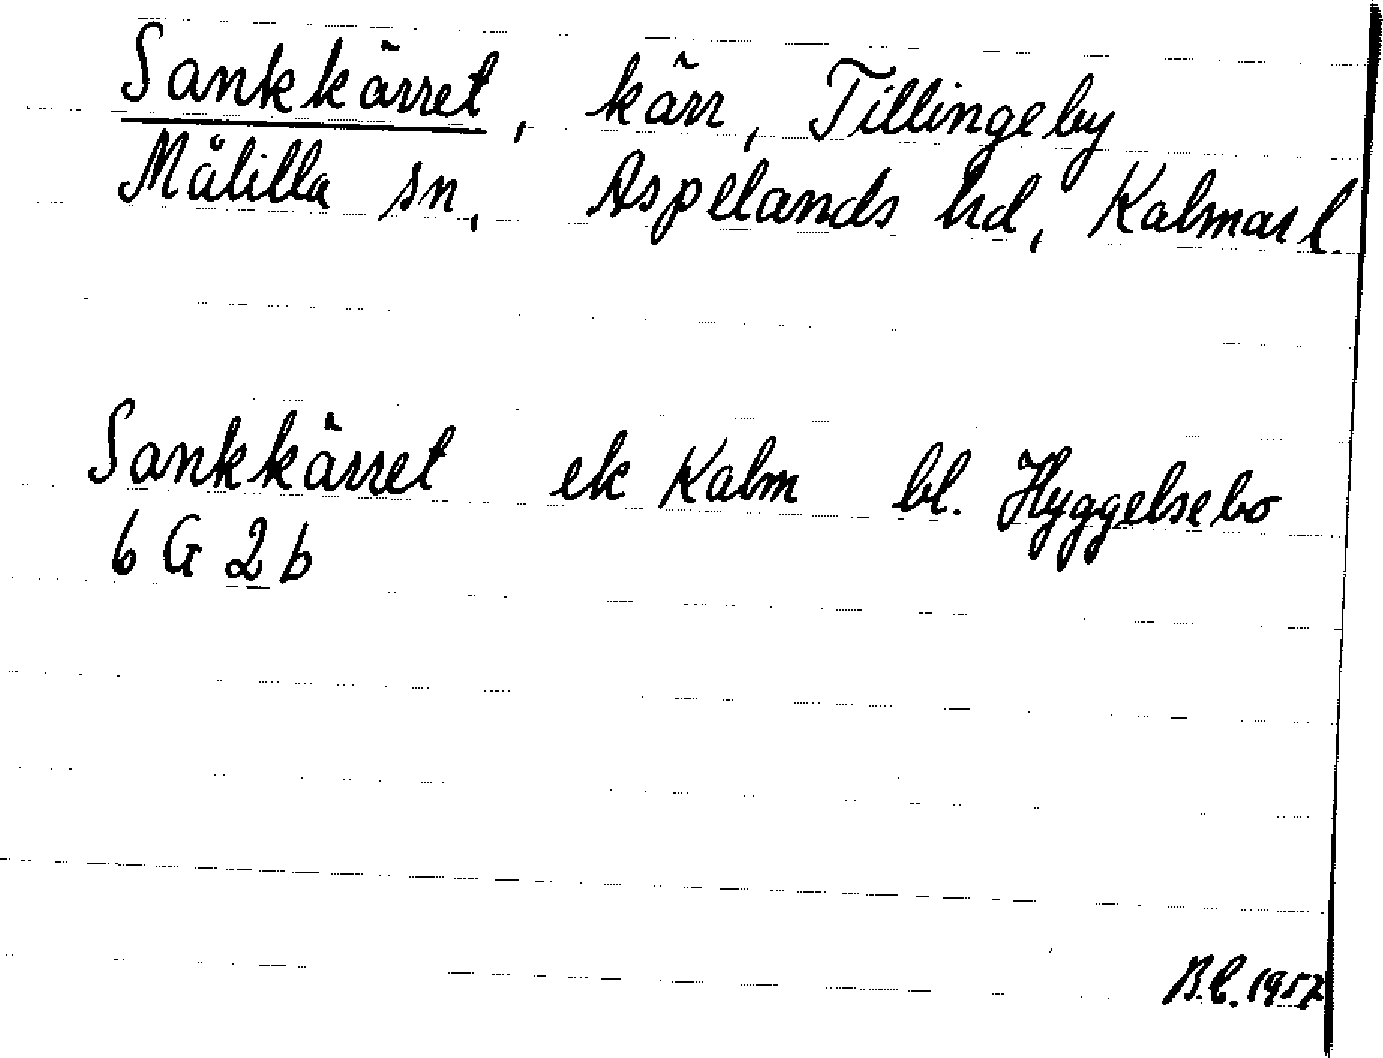 Sankkärret, kärr, Tillingeby
Målilla sn, Aspelands hd, Kalmar l.
Sankkärret ek Kalm bl. Hyggelsebo
6 G 2 b
B.C. 1957